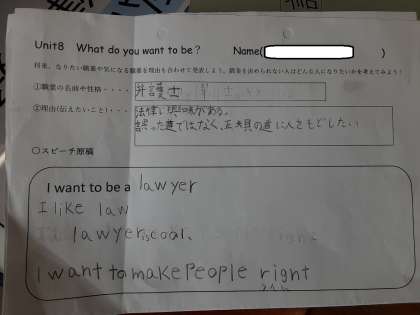 Unit8 What do you want to be? Name( )
将来、なりたい職業や気になる職業を理由も合わせて発表しよう。職業を決められない人はどんな人になりたいかを考えてみよう!
①職業の名前や性格・・・・ 弁護士
②理由(伝えたいこと)・・・・ 法律に興味がある。
誤った道ではなく、正規の道に人をもどしたい
○スピーチ原稿
I want to be a lawyer
I like law
lawyer is coal.
I want to make People right